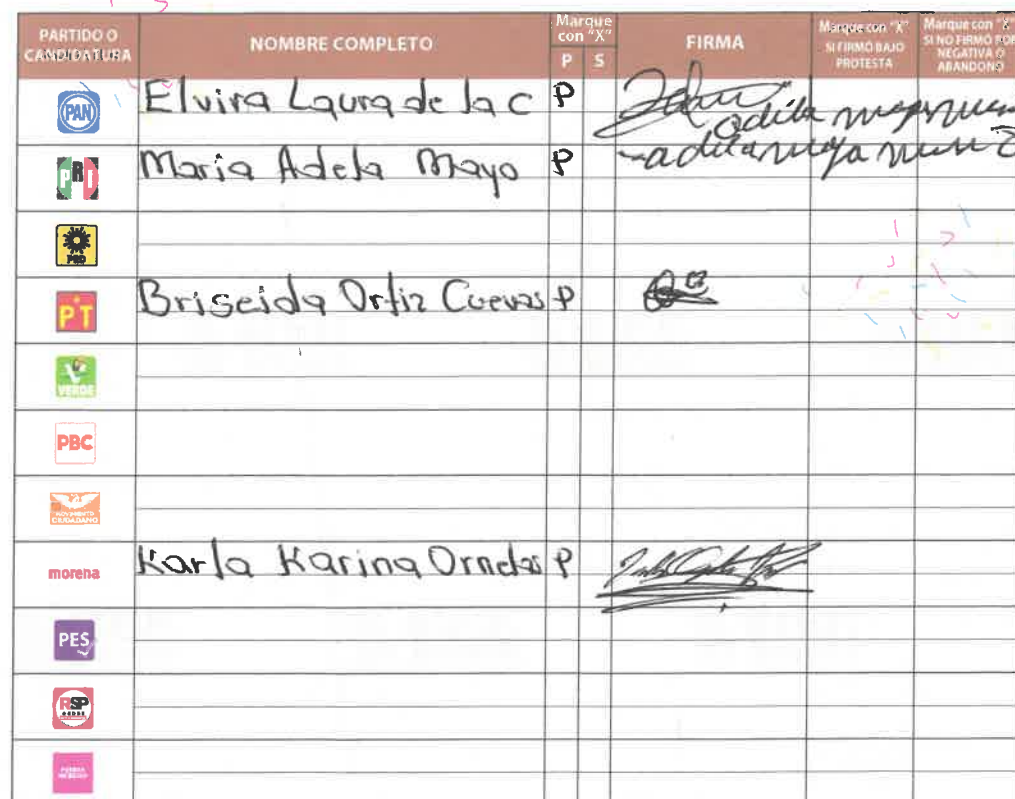 PARTIDO O CANDIDATURA NOMBRE COMPLETO Marque con "X" P S FIRMA Marque con "X" SI FIRMÓ BAJO PROTESTA Marque con "X" SI NO FIRMÓ POR NEGATIVA O ABANDONO
PAN Elvira Laura de la C P
PRI Maria Adela Mayo P
PRD
PT Briseida Ortiz Cuevas P
VERDE
PBC
MOVIMIENTO CIUDADANO
morena Karla Karina Ornelas P
PES
RSP